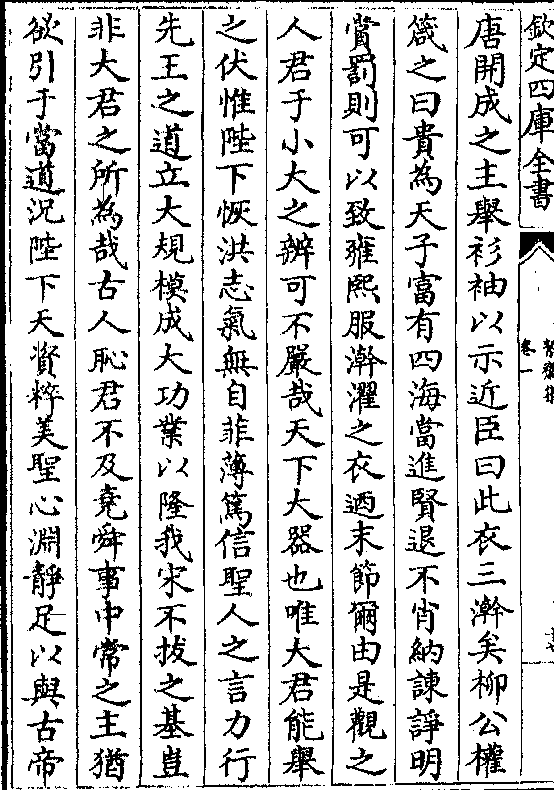 欽定四庫全書
卷一
唐開成之主舉衫袖以示近臣曰此衣三澣矣柳公權
箴之曰貴為天子富有四海當進賢退不肖納諫諍明
賞罰則可以致雍熙服澣濯之衣迺末節爾由是觀之
人君于小大之辨可不嚴哉天下大器也唯大君能舉
之伏惟陛下恢洪志氣無自菲薄篤信聖人之言力行
先王之道立大規模成大功業以隆我宋不拔之基豈
非大君之所為哉古人恥君不及堯舜事中常之主猶
欲引于當道況陛下天資粹美聖心淵靜足以與古帝